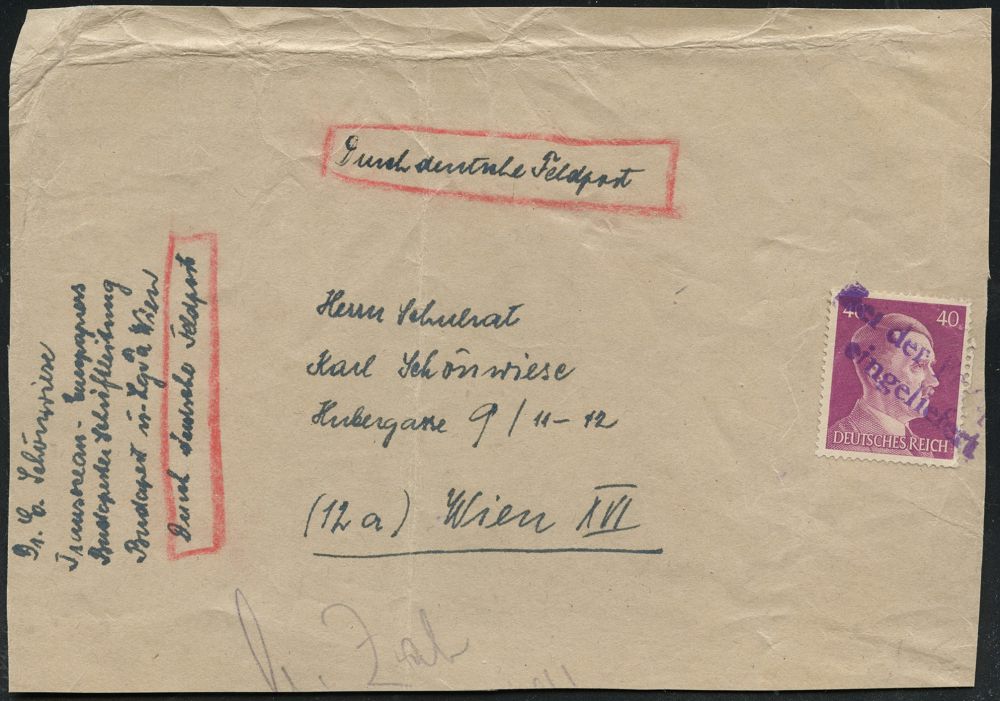 Durch deutsche Feldpost
Herrn Schulrat
Karl Schönwiese
Hubergasse 9/11-12
(12a) Wien XVI
Dr. E. Schönwiese
Transocean-Europapress
Budapester Schriftleitung
Budapest ü. Lgpa Wien
Durch deutsche Feldpost
40 40
DEUTSCHES REICH
bei der
eingeliefert